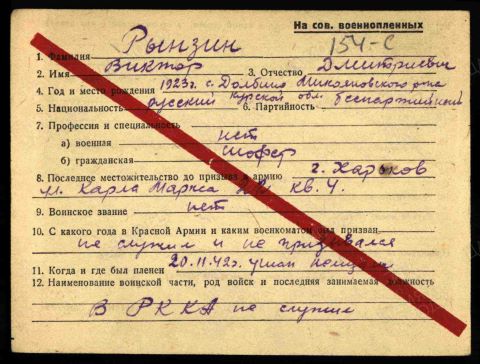 На сов. военнопленных
154-С
1. Фамилия Рынзин
2. Имя Виктор 3. Отчество Дмитриевич
4. Год и место рождения 1923г. с. Долбино Микояновского р-на
Курской обл.
5. Национальность русский 6. Партийность беспартийный
7. Профессия и специальность
а) военная нет
б) гражданская шофер
8. Последнее местожительство до призыва в армию г. Харьков
ул. Карла Маркса кв. 4.
9. Воинское звание нет
10. С какого года в Красной Армии и каким военкоматом был призван
не служил и не призывался
11. Когда и где был пленен 20.11.42г.
12. Наименование воинской части, род войск и последняя занимаемая должность
В РККА не служил